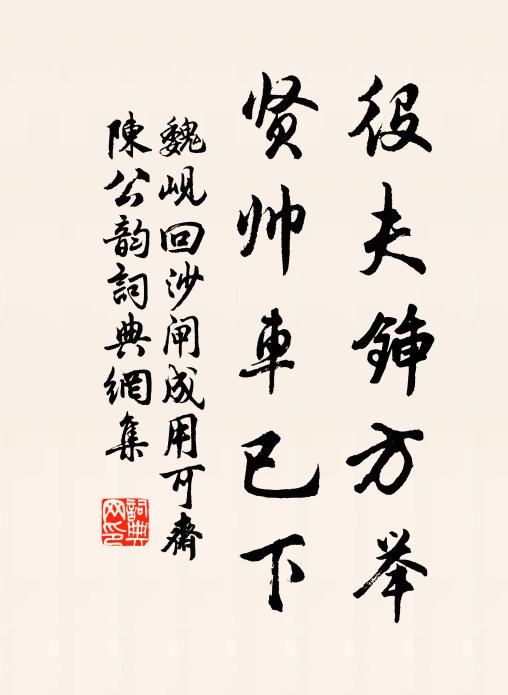 役夫锸方举
贤帅車已下
魏峴回沙闸成用可齋
陳公韵詞典網集
詞典网印